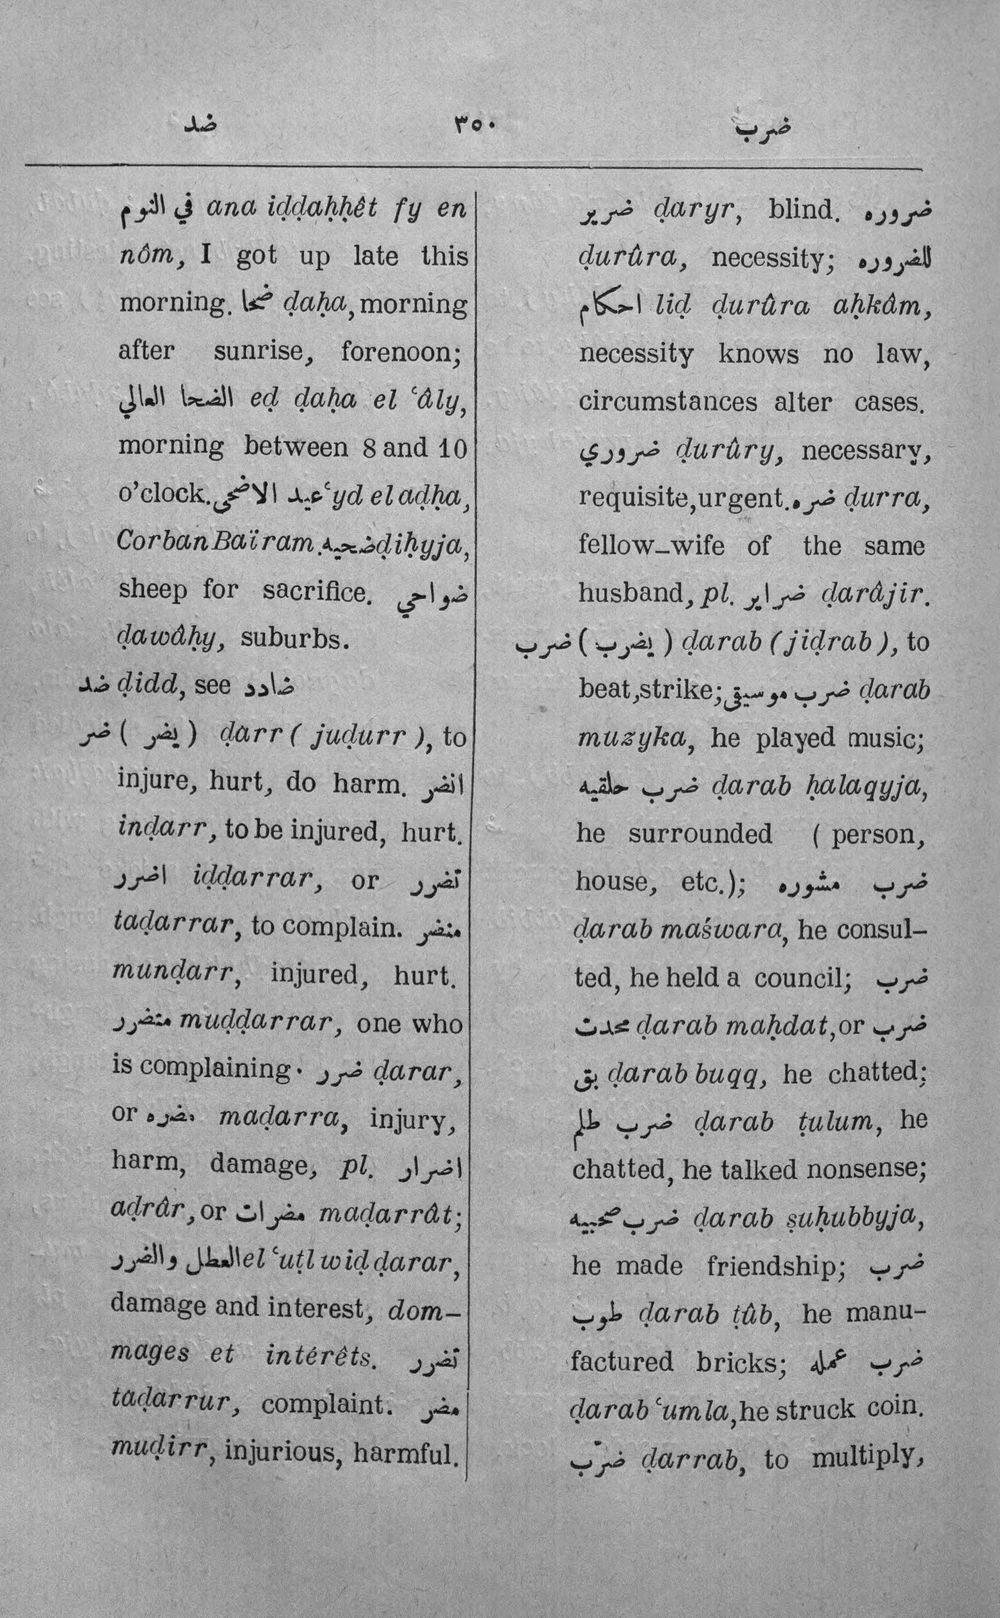 ضد ٣٥٠ ضرب
في النوم ana iḍḍaḥḥêt fy en
nôm, I got up late this
morning. ضحا ḍaḥa, morning
after sunrise, forenoon;
الضحا العالي eḍ ḍaḥa el ʿâly,
morning between 8 and 10
o'clock. عيد الاضحى ʿyd el aḍḥa,
Corban Baïram. ضحيه ḍiḥyja,
sheep for sacrifice. ضواحي
ḍawâḥy, suburbs.
ضد ḍidd, see ضادد
ضر ( يضر ) ḍarr ( juḍurr ), to
injure, hurt, do harm. انضر
inḍarr, to be injured, hurt.
اضرر iḍḍarrar, or تضرر
taḍarrar, to complain. منضر
munḍarr, injured, hurt.
متضرر muḍḍarrar, one who
is complaining. ضرر ḍarar,
or مضره maḍarra, injury,
harm, damage, pl. اضرار
aḍrâr, or مضرات maḍarrât;
العطل والضرر el ʿuṭl wiḍ ḍarar,
damage and interest, dom-
mages et intérêts. تضرر
taḍarrur, complaint. مضر
muḍirr, injurious, harmful.
ضرير ḍaryr, blind. ضروره
ḍurûra, necessity; للضروره
احكام liḍ ḍurûra aḥkâm,
necessity knows no law,
circumstances alter cases.
ضروري ḍurûry, necessary,
requisite, urgent. ضره ḍurra,
fellow-wife of the same
husband, pl. ضراير ḍarâjir.
ضرب ( يضرب ) ḍarab ( jiḍrab ), to
beat, strike; ضرب موسيقى ḍarab
muzyka, he played music;
ضرب حلقيه ḍarab ḥalaqyja,
he surrounded ( person,
house, etc.); ضرب مشوره
ḍarab maśwara, he consul-
ted, he held a council; ضرب
محدث ḍarab maḥdat, or ضرب
بق ḍarab buqq, he chatted;
ضرب طلم ḍarab ṭulum, he
chatted, he talked nonsense;
ضرب صحبيه ḍarab ṣuḥubbyja,
he made friendship; ضرب
طوب ḍarab ṭûb, he manu-
factured bricks; ضرب عمله
ḍarab ʿumla, he struck coin.
ضرّب ḍarrab, to multiply,